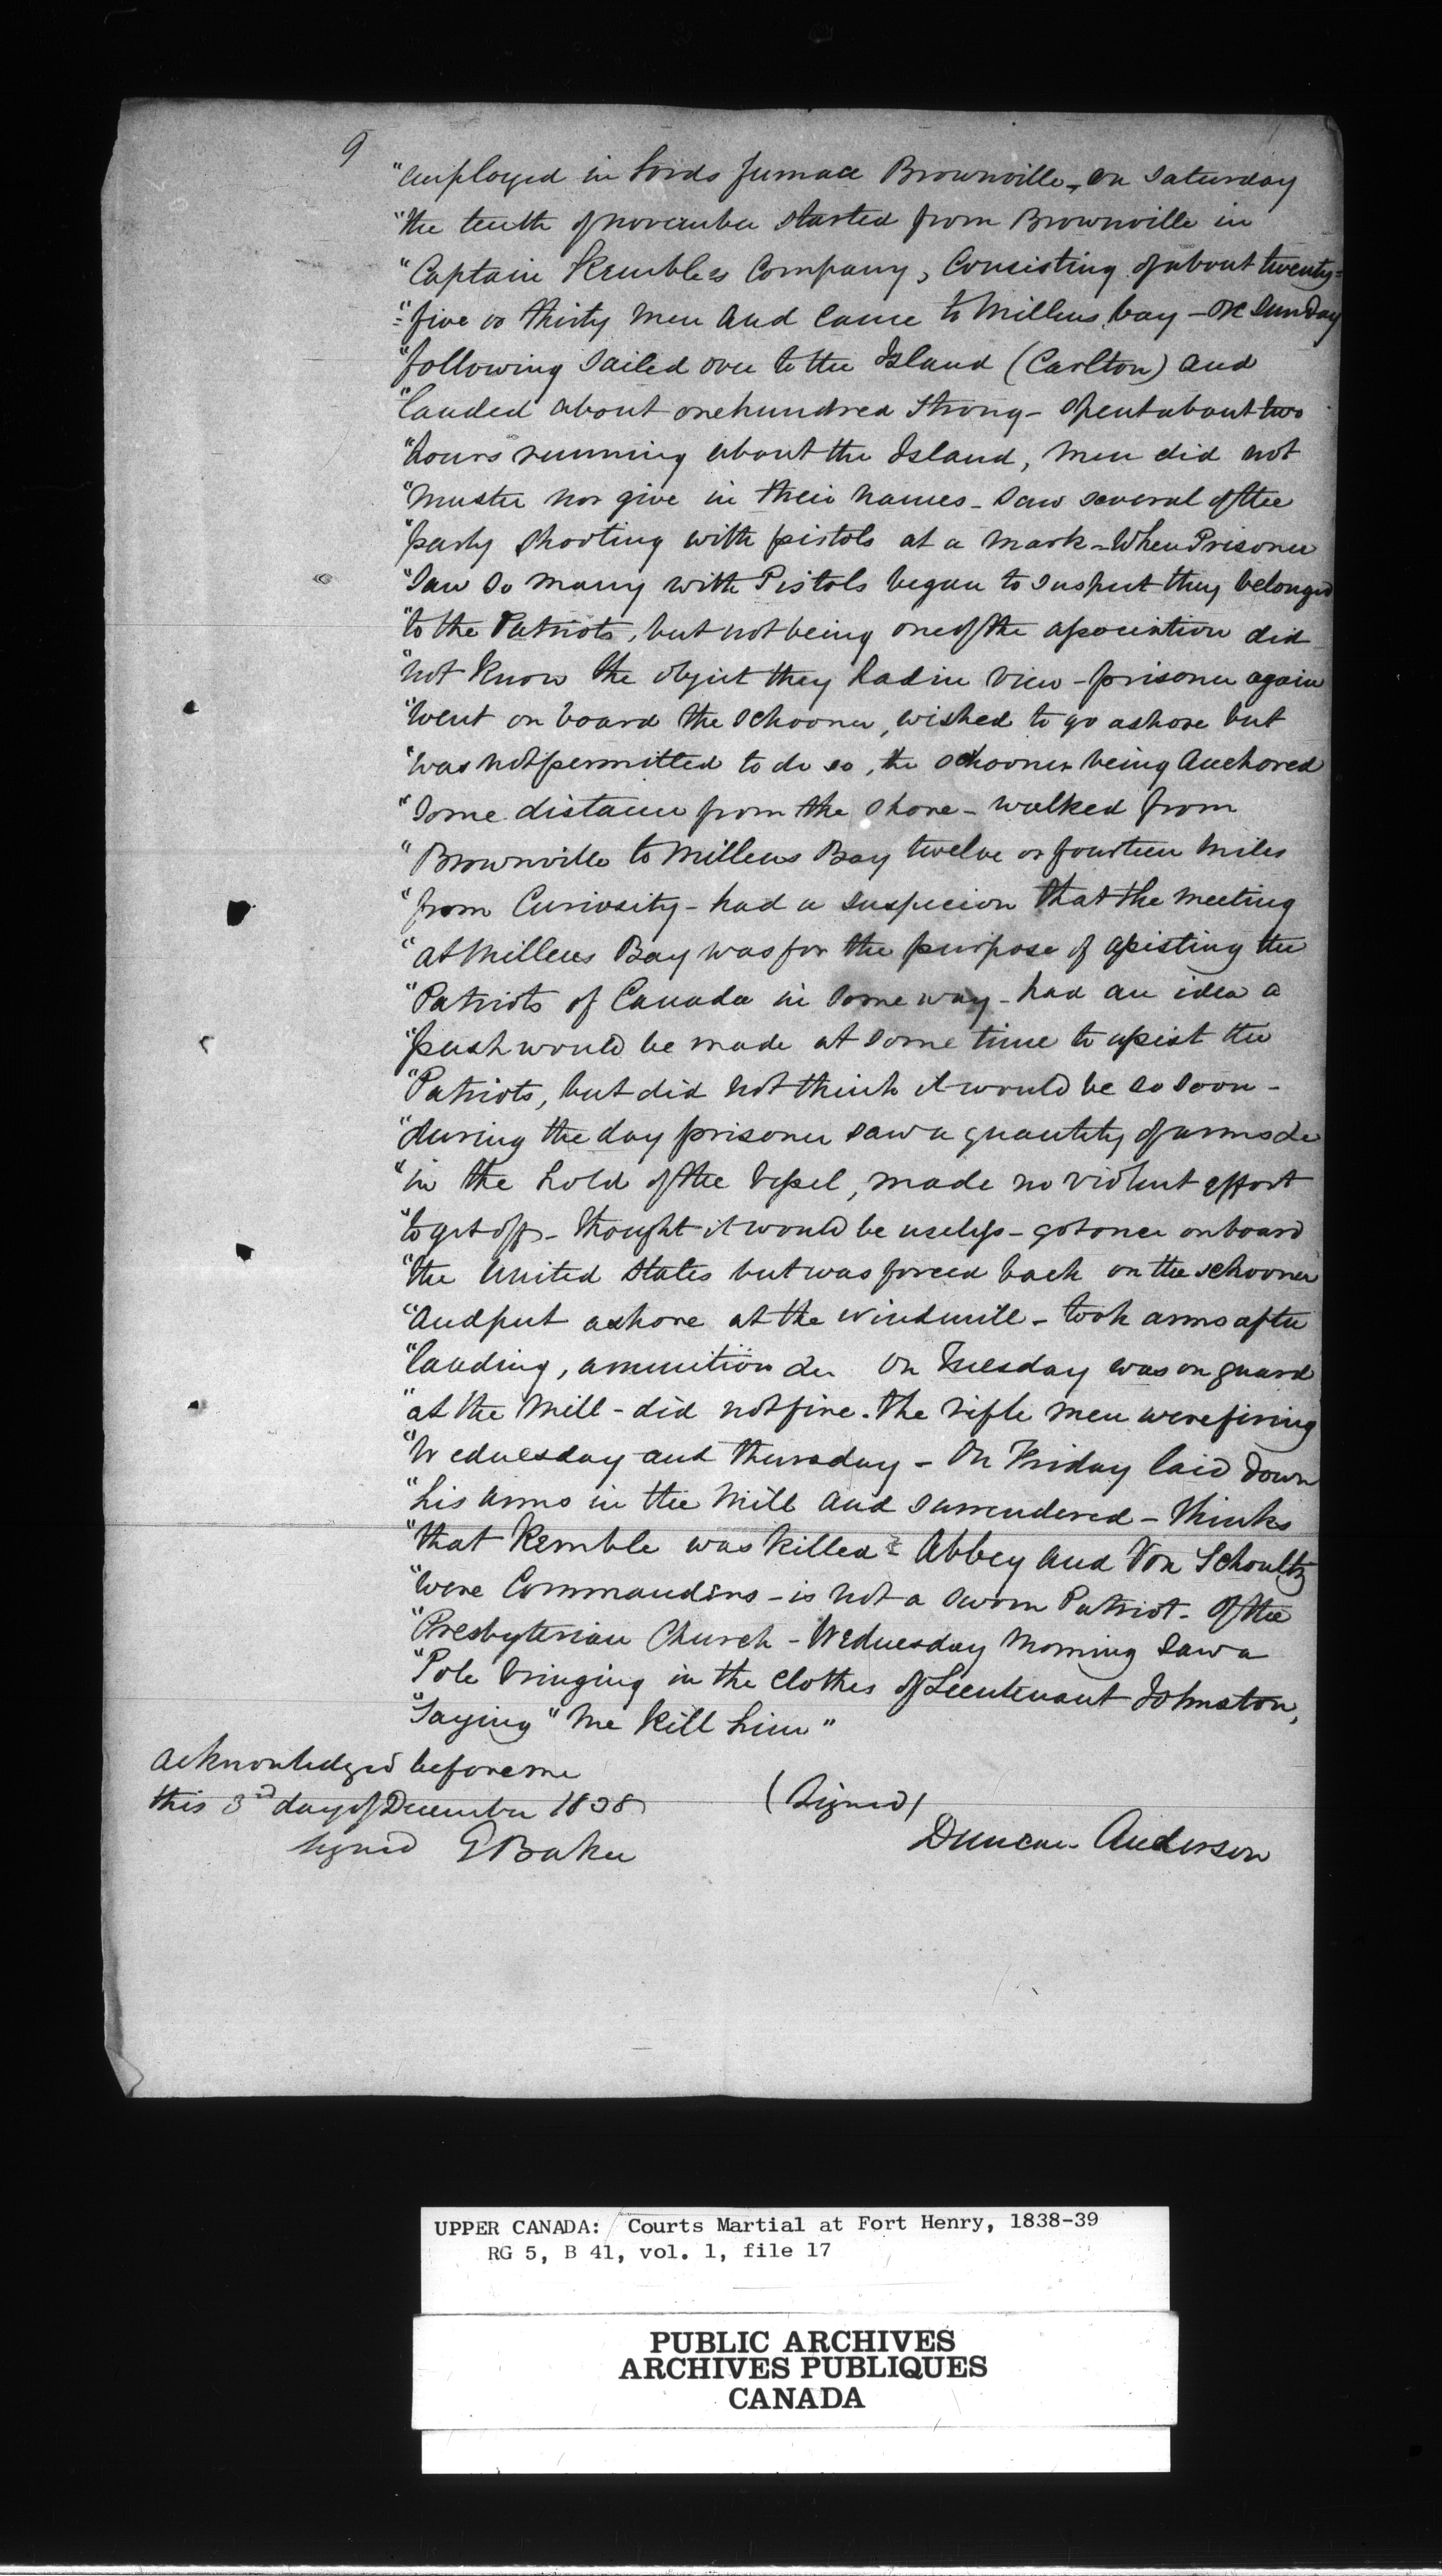 9
"employed in Lords furnace Brownville, on Saturday
"the tenth of november started from Brownville in
"Captain Kemble's Company, Consisting of about twenty=
"=five or thirty men and came to Millens bay - on Sunday
"following sailed over to the Island (Carlton) and
"landed about one hundred strong - spent about two
"hours running about the Island, men did not
"muster nor give in their names - saw several of the
"party shooting with pistols at a mark - When Prisoner
"saw so many with Pistols began to suspect they belonged
"to the Patriots, but not being one of the association did
"not know the object they had in view - prisoner again
"went on board the schooner, wished to go ashore but
"was not permitted to do so, the schooner being anchored
"some distance from the shore - walked from
"Brownville to Millens Bay twelve or fourteen miles
"from Curiosity - had a suspicion that the meeting
"at Millens Bay was for the purpose of assisting the
"Patriots of Canada in some way - had an idea a
"push would be made at some time to assist the
"Patriots, but did not think it would be so soon -
"during the day prisoner saw a quantity of arms &c
"in the hold of the vessel, made no violent effort
"to get off - thought it would be useless - got once on board
"the United States but was forced back on the schooner
"and put ashore at the windmill - took arms after
"landing, ammunition &c On Tuesday was on guard
"at the Mill - did not fire. The rifle men were firing
"Wednesday and Thursday - On Friday laid down
"his arms in the Mill and surrendered - thinks
"that Kemble was killed - Abbey and Von Schoultz
"were Commanders - is not a sworn Patriot - of the
"Presbyterian Church - Wednesday morning saw a
"Pole bringing in the clothes of Lieutenant Johnston,
"saying "me kill him"
Acknowledged before me
this 3rd day of December 1838
(Signed)
signed G Baker
Duncan Anderson
UPPER CANADA: Courts Martial at Fort Henry, 1838-39
RG 5, B 41, vol. 1, file 17
PUBLIC ARCHIVES
ARCHIVES PUBLIQUES
CANADA